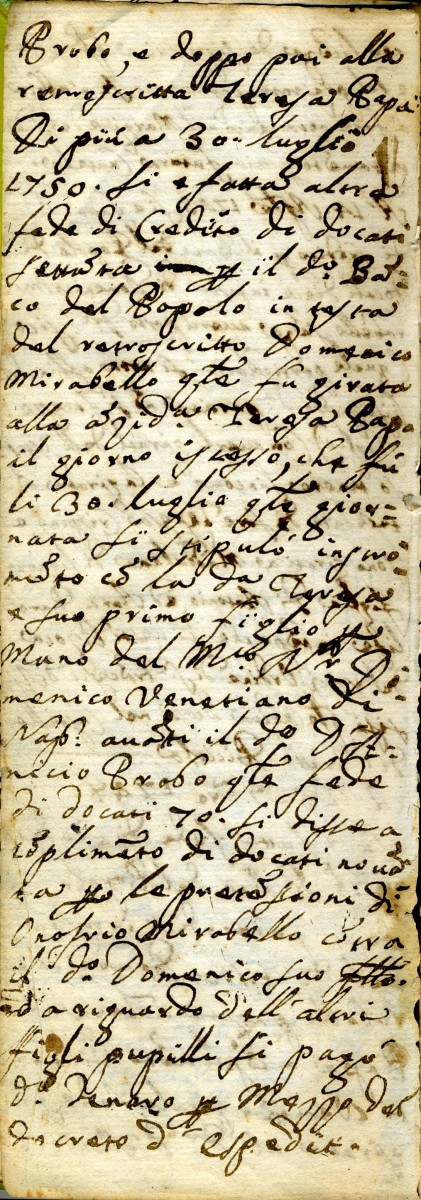 Probo, e doppo poi alla
retroscritta Teresa Papa
Di più a 30. luglio
1750. si è fatta altra
fede di Credito di docati
settāta p il dº. Bā=
co del Popolo in testa
del retroscritto Domenico
Mirabello qle fu girata
alla Teresa Papa
il giorno istesso, che fù
li 30. luglio qle gior=
nata si stipulò instro=
mēto cō la da Teresa
e suo primo figlio p
Mano del Mco Nr Do=
menico Venetiano di
Nap. avāti il do D. A=
nicio Probo qle fede
di docati 70. si disse a
cōplimēto di docati novā
ta p le pretēssioni di
Onofrio Mirabello cōtra
il dº. Domenico suo
ed a riguardo dell'altri
figli pupilli si pagò
dº. denaro p mezzo del
decreto d' espedit.